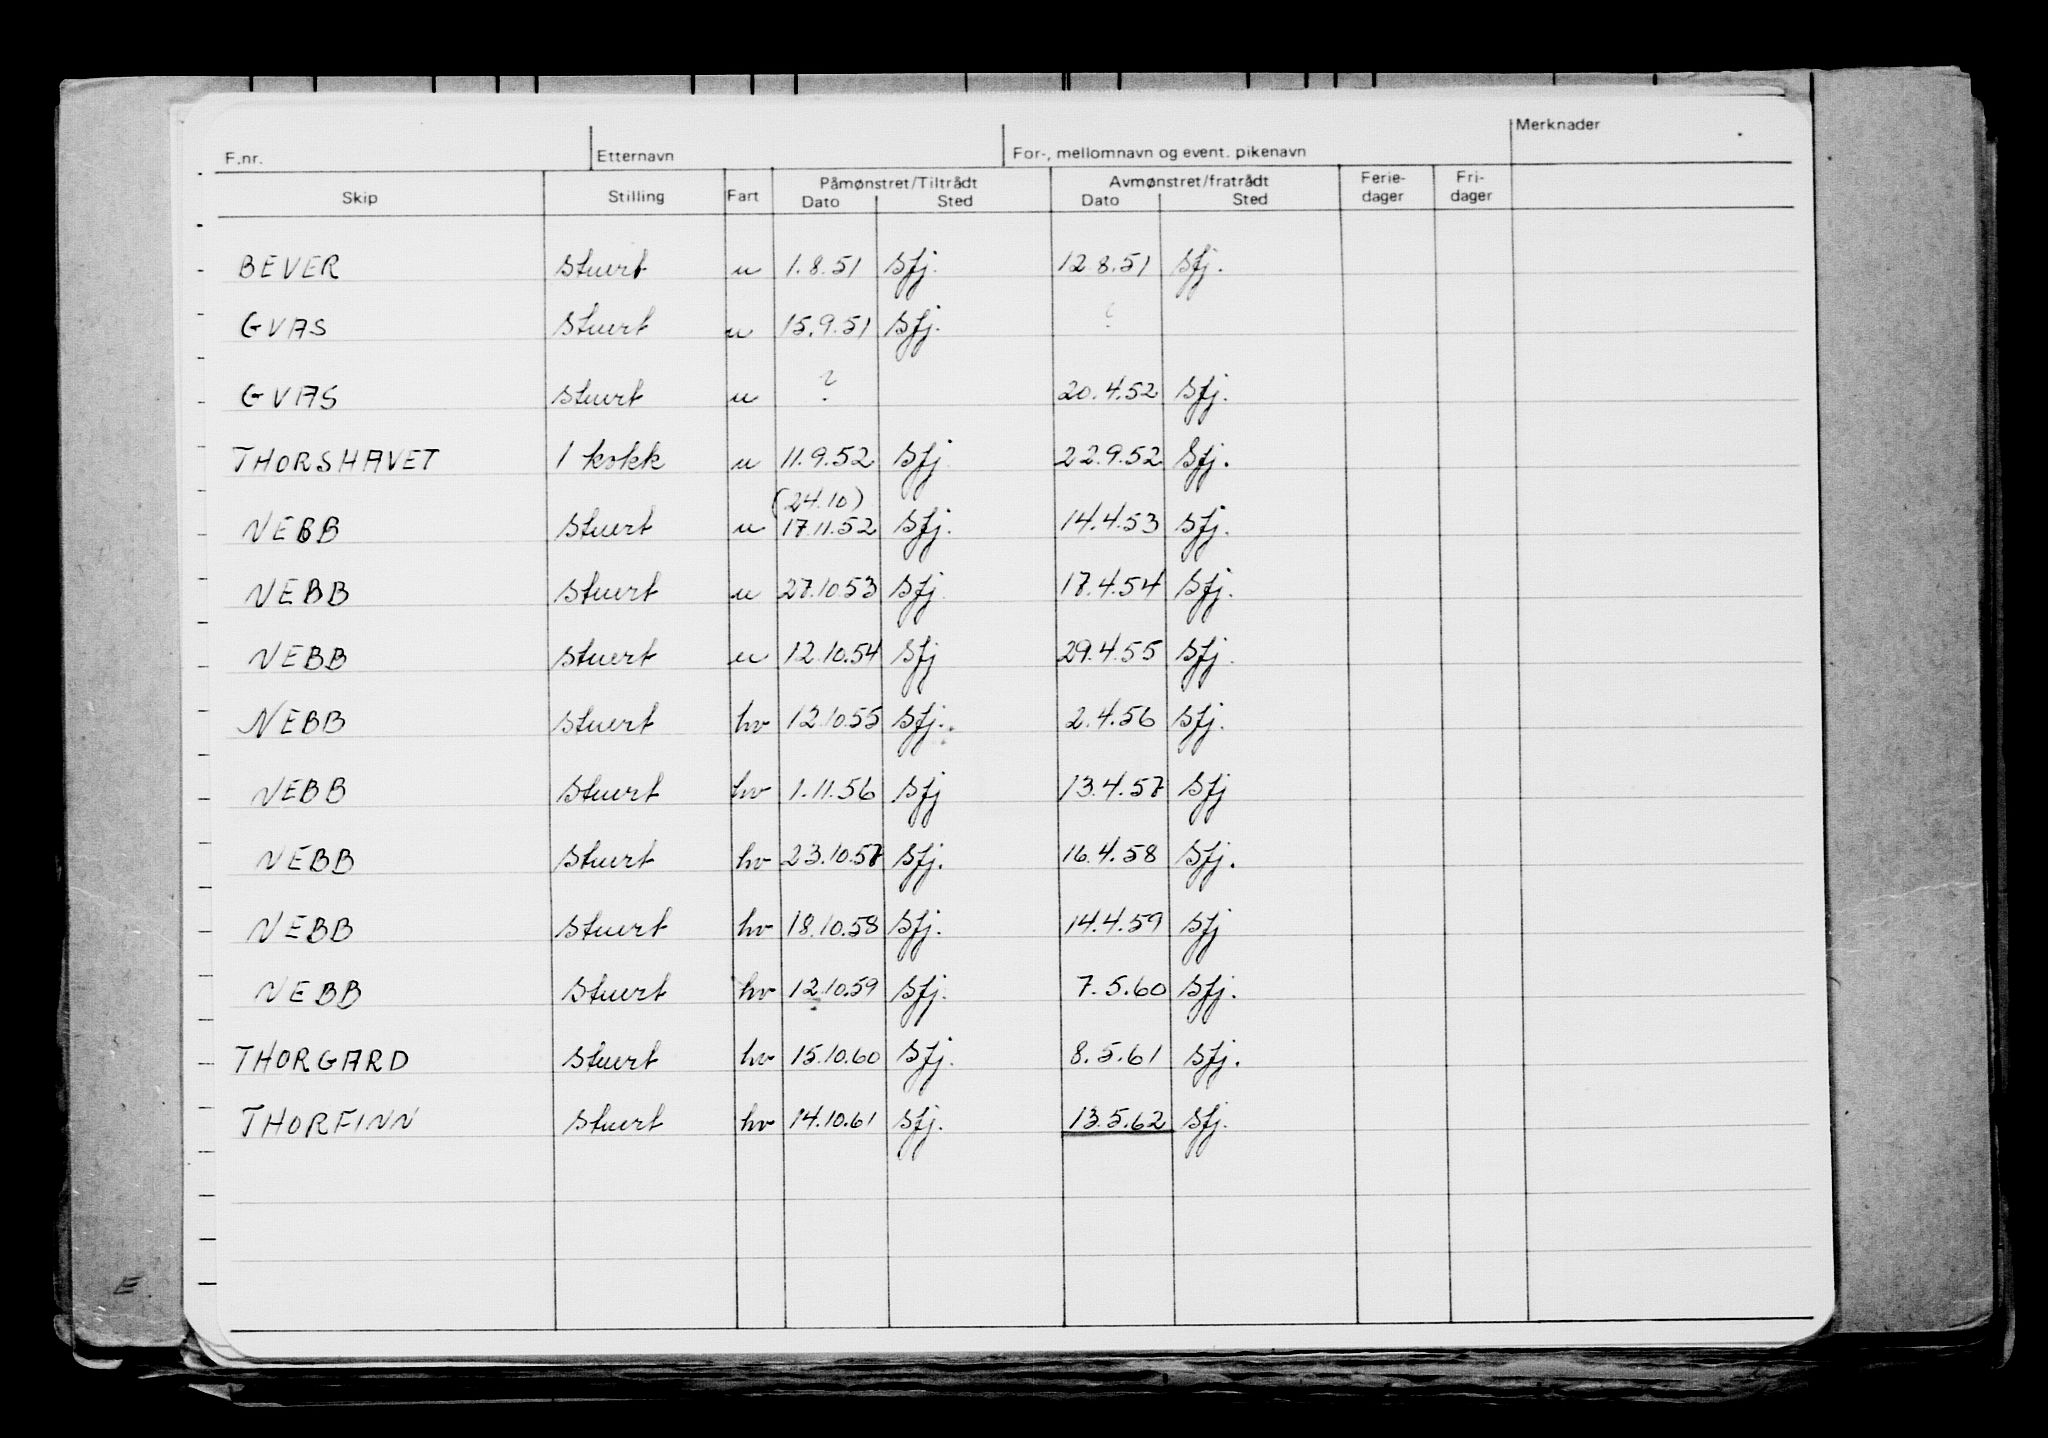 F.nr. Etternavn For-, mellomnavn og event. pikenavn Merknader
Skip Stilling Fart Påmønstret/Tiltrådt Dato Sted Avmønstret/fratrådt Dato Sted Ferie-dager Fri-dager
BEVER Stuert u 1.8.51 Sfj. 12.8.51 Sfj.
GVAS Stuert u 15.9.51 Sfj. ?
GVAS Stuert u ? 20.4.52 Sfj.
THORSHAVET 1 kokk u 11.9.52 Sfj 22.9.52 Sfj.
(24.10)
NEBB Stuert u 17.11.52 Sfj. 14.4.53 Sfj.
NEBB Stuert u 27.10.53 Sfj 17.4.54 Sfj.
NEBB Stuert u 12.10.54 Sfj 29.4.55 Sfj.
NEBB Stuert hv 12.10.55 Sfj. 2.4.56 Sfj.
NEBB Stuert hv 1.11.56 Sfj 13.4.57 Sfj
NEBB Stuert hv 23.10.57 Sfj. 16.4.58 Sfj.
NEBB Stuert hv 18.10.58 Sfj. 14.4.59 Sfj
NEBB Stuert hv 12.10.59 Sfj. 7.5.60 Sfj.
THORGARD Stuert hv 15.10.60 Sfj. 8.5.61 Sfj.
THORFINN Stuert hv 14.10.61 Sfj. 13.5.62 Sfj.
E